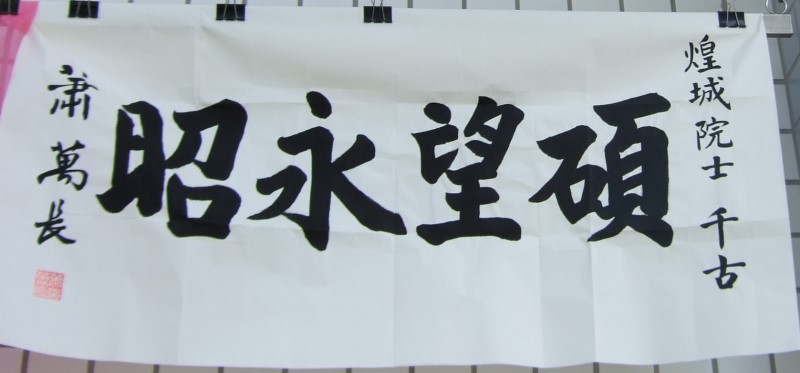 煌城院士 千古
碩望永昭
蕭萬長